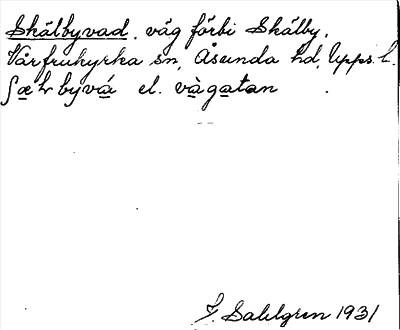 Skälbyvad. väg förbi Skälby,
Vårfrukyrka sn, Åsunda hd, Upps. l.
el. vàgatan
J. Sahlgren 1931